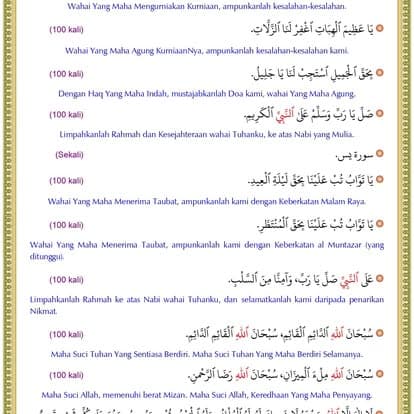 Wahai Yang Maha Mengurniakan Kurniaan, ampunkanlah kesalahan-kesalahan.
يَا عَظِيمَ ٱلْهِبَاتِ ٱغْفِرْ لَنَا ٱلزَّلَّاتِ. (100 kali)
Wahai Yang Maha Agung KurniaanNya, ampunkanlah kesalahan-kesalahan kami.
بِحَقِّ ٱلْجَمِيلِ ٱسْتَجِبْ لَنَا يَا جَلِيلُ. (100 kali)
Dengan Haq Yang Maha Indah, mustajabkanlah Doa kami, wahai Yang Maha Agung.
صَلِّ يَا رَبِّ وَسَلِّمْ عَلَى ٱلنَّبِيِّ ٱلْكَرِيمِ. (100 kali)
Limpahkanlah Rahmah dan Kesejahteraan wahai Tuhanku, ke atas Nabi yang Mulia.
سورة يٓس. (Sekali)
يَا تَوَّابُ تُبْ عَلَيْنَا بِحَقِّ لَيْلَةِ ٱلْعِيدِ. (100 kali)
Wahai Yang Maha Menerima Taubat, ampunkanlah kami dengan Keberkatan Malam Raya.
يَا تَوَّابُ تُبْ عَلَيْنَا بِحَقِّ ٱلْمُنْتَظَرِ. (100 kali)
Wahai Yang Maha Menerima Taubat, ampunkanlah kami dengan Keberkatan al Muntazar (yang
ditunggu).
عَلَى ٱلنَّبِيِّ صَلِّ يَا رَبِّ، وَآمِنَّا مِنَ ٱلسَّلْبِ. (100 kali)
Limpahkanlah Rahmah ke atas Nabi wahai Tuhanku, dan selamatkanlah kami daripada penarikan
Nikmat.
سُبْحَانَ ٱللهِ ٱلدَّائِمِ ٱلْقَائِمِ، سُبْحَانَ ٱللهِ ٱلْقَائِمِ ٱلدَّائِمِ. (100 kali)
Maha Suci Tuhan Yang Sentiasa Berdiri. Maha Suci Tuhan Yang Maha Berdiri Selamanya.
سُبْحَانَ ٱللهِ مِلْءَ ٱلْمِيزَانِ، سُبْحَانَ ٱللهِ رِضَا ٱلرَّحْمٰنِ. (100 kali)
Maha Suci Allah, memenuhi berat Mizan. Maha Suci Allah, Keredhaan Yang Maha Penyayang.